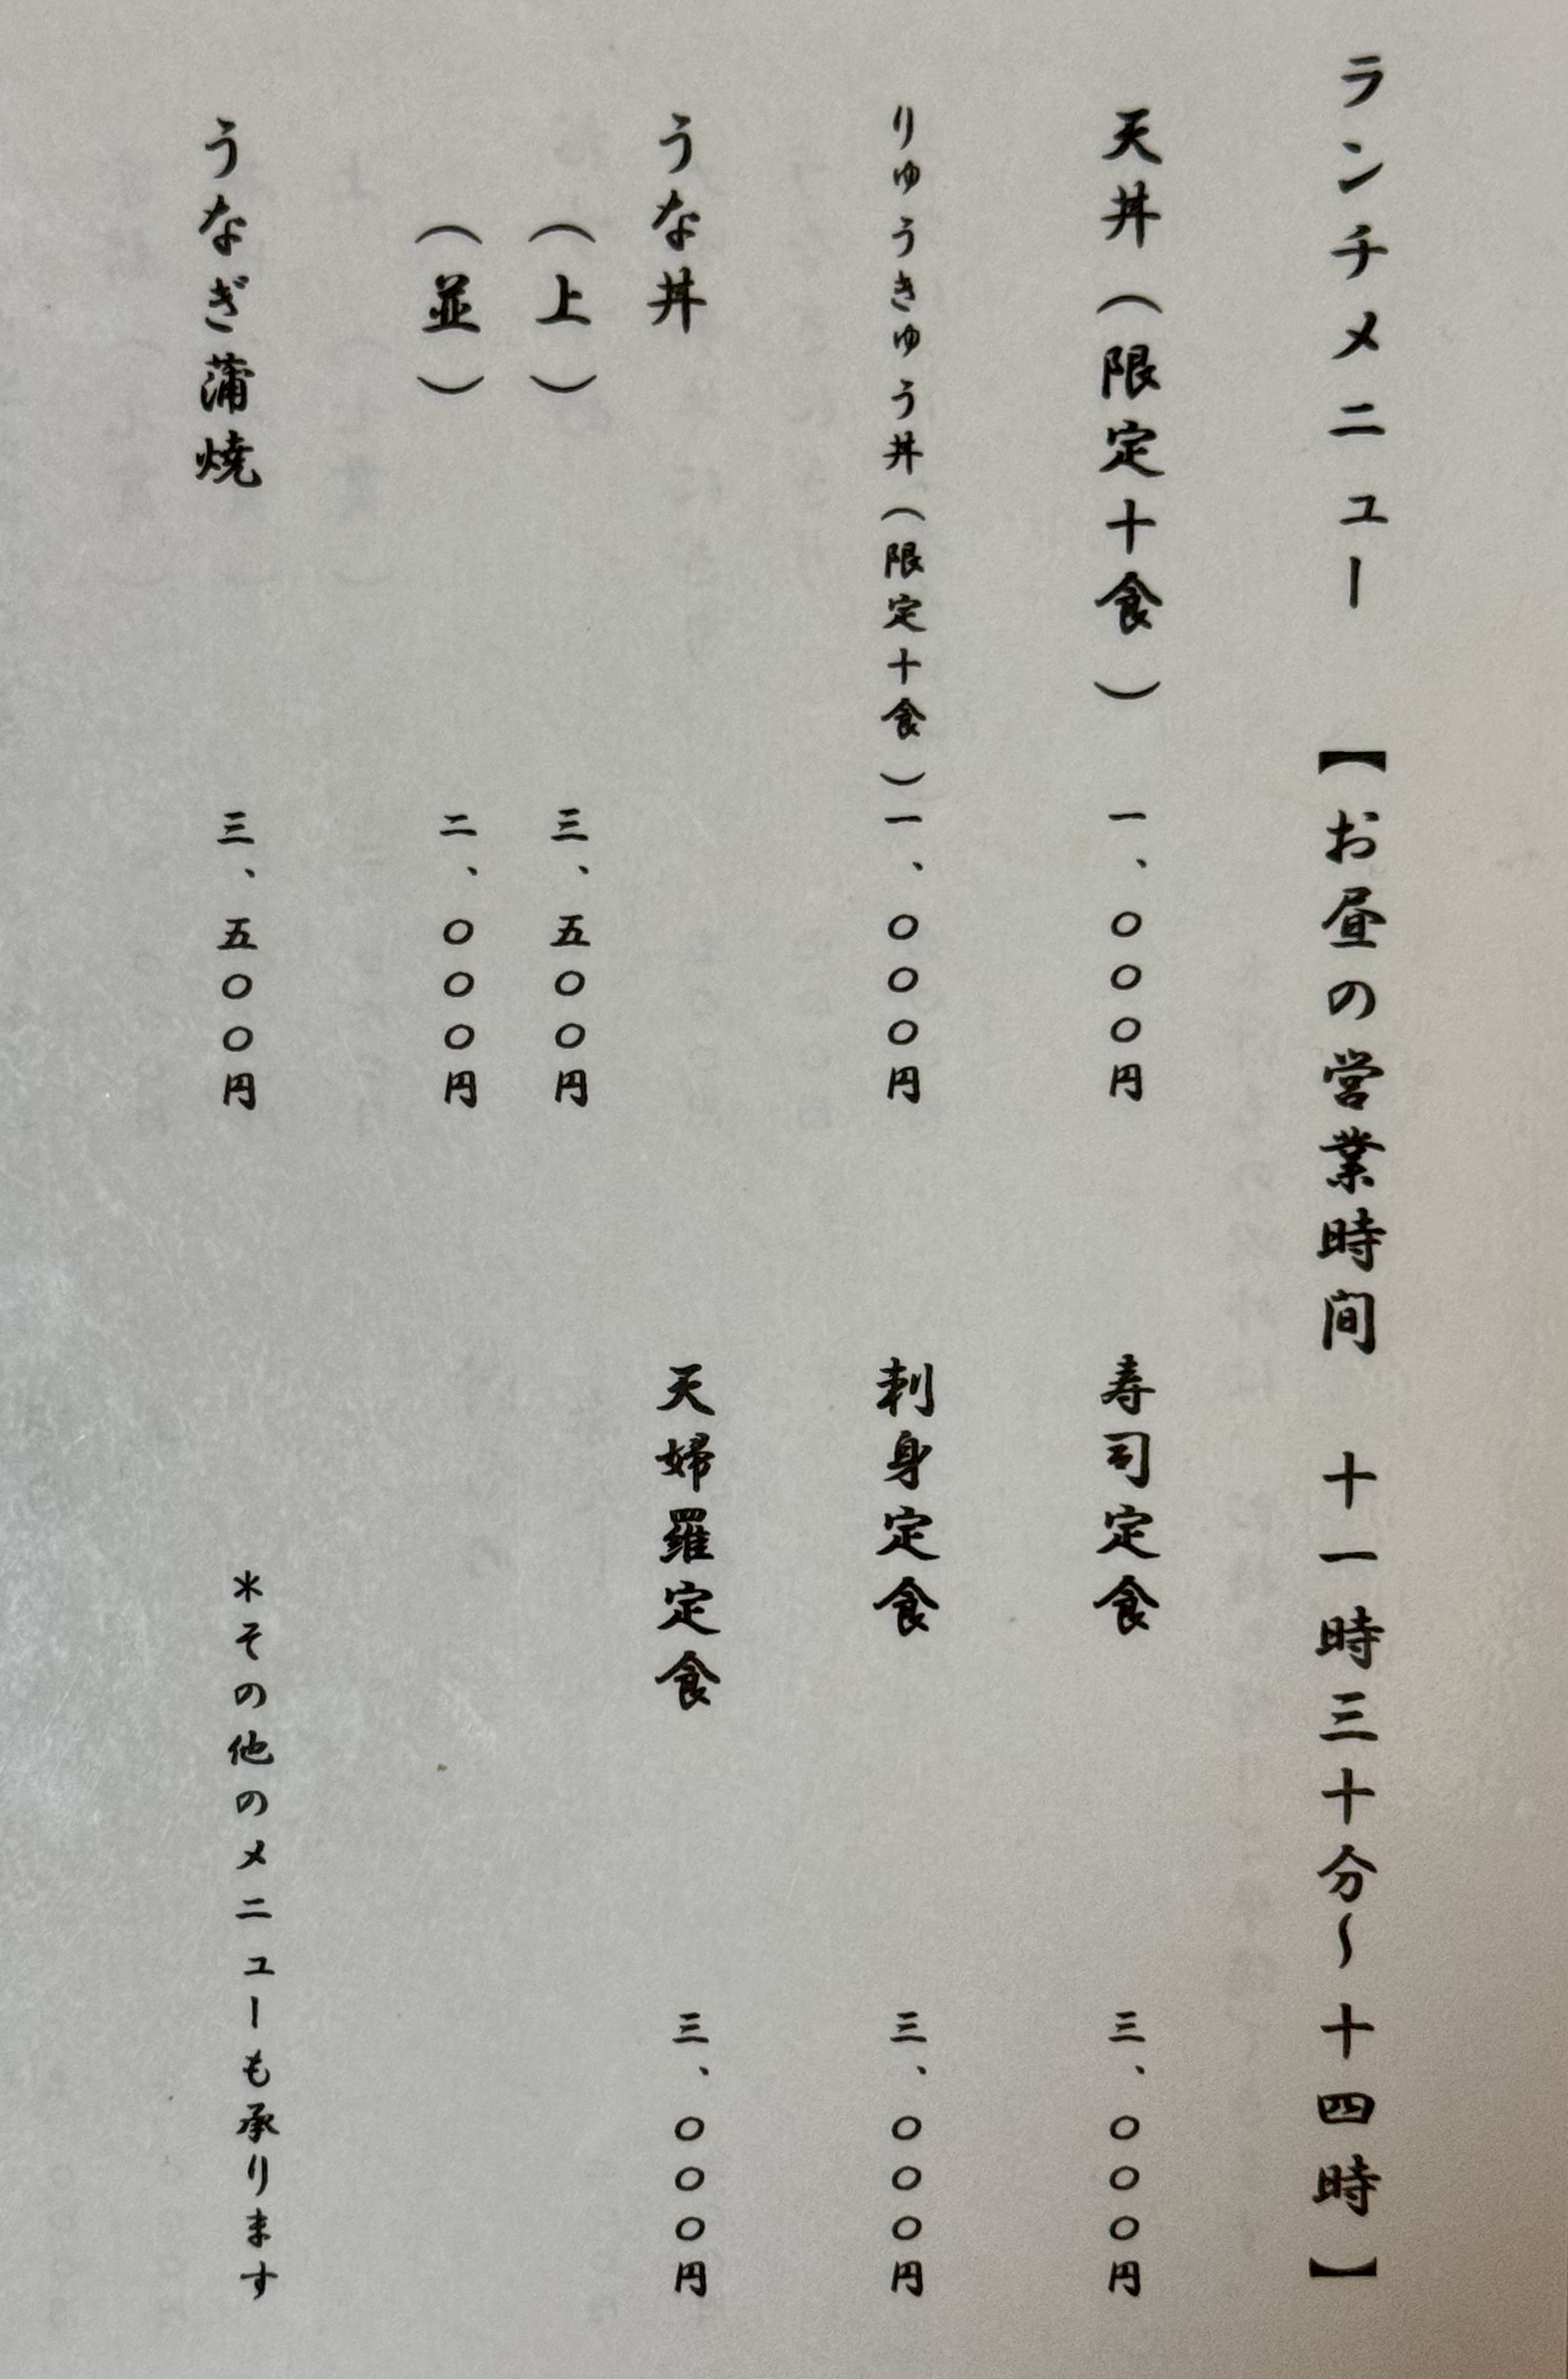 ランチメニュー 【お昼の営業時間 十一時三十分～十四時】
天丼(限定十食) 一、〇〇〇円
寿司定食 三、〇〇〇円
りゅうきゅう丼(限定十食) 一、〇〇〇円
刺身定食 三、〇〇〇円
うな丼
天婦羅定食 三、〇〇〇円
(上) 三、五〇〇円
(並) 二、〇〇〇円
うなぎ蒲焼 三、五〇〇円
*その他のメニューも承ります